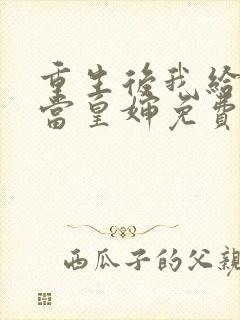 重生後我給
當皇婶免費
西瓜子的父親